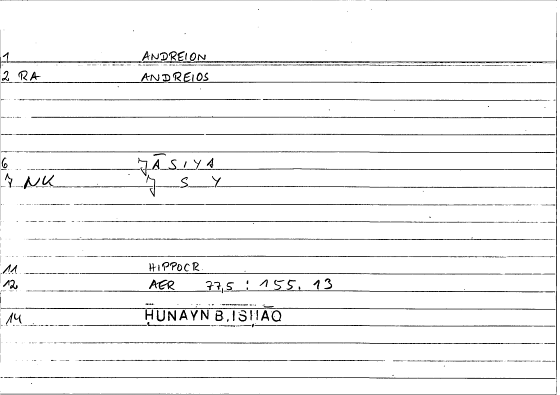 1 ANDREION
2 RA ANDREIOS
6 JĀSIYA
7 NK J S Y
11 HIPPOCR.
12 AER 77,5 : 155, 13
14 ḤUNAYN B. ISḤĀQ